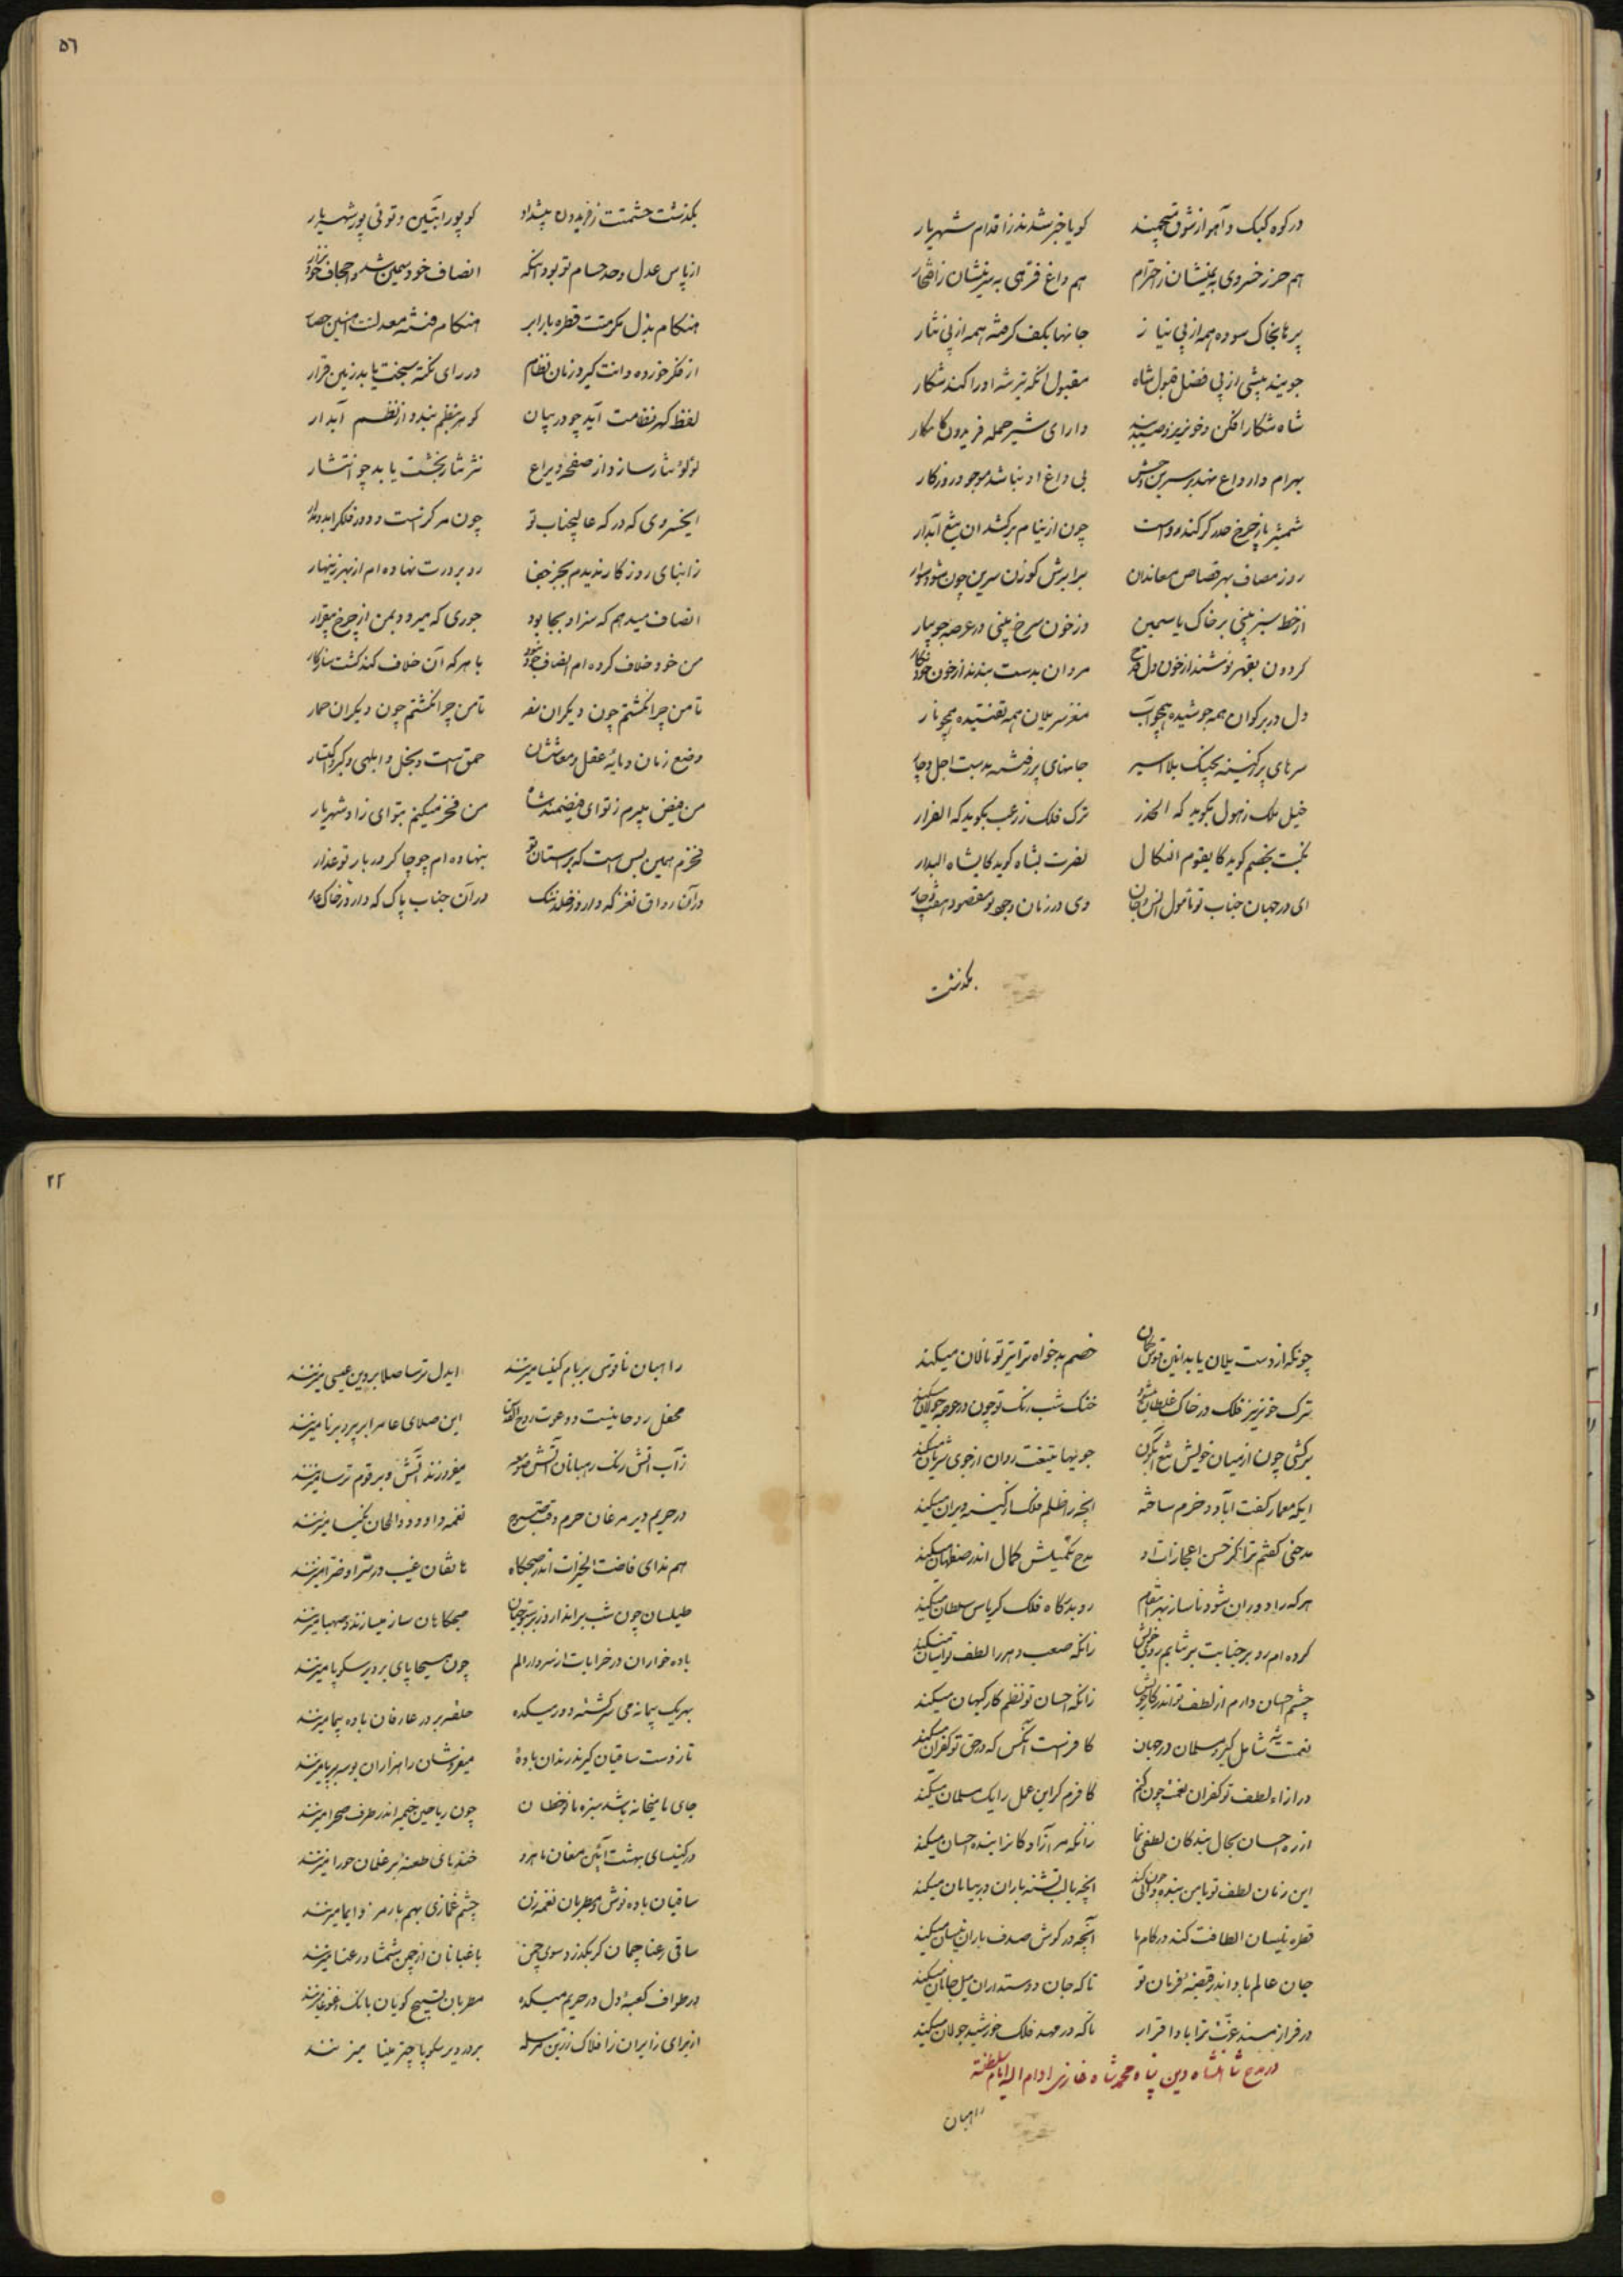 در کوه کبک و آهو از شوق میچمند
کویا خبر شدند ز اقدام شهریار
هم حرز خسروی به یمینشان ز احترام
هم داغ فرّهی به سرینشان ز افتخار
پرها بخاک سوده همه از پی نیاز
جانها بکف گرفته همه از پی نثار
جویند پیشی از پی فضل قبول شاه
مقبول آنکه تیر شه او را کند شکار
شاه شکار افکن و خونریز و صیدبند
دارای شیر حمله فریدون کامکار
بهرام وار داغ نهد بر سرین وحش
بی داغ او نباشد موجود روزگار
شمشیر باز چرخ حذر کر کند رواست
چون از نیام برکشد آن تیغ آبدار
روز مصاف بهر قصاص معاندان
بر ابرش کوزن سرین چون شود سوار
از خط سبز بینی بر خاک یاسمین
وز خون سرخ بینی در عرصه جویبار
کردون بقهر نوشند از خون دل قدح
مردان بدست بندند از خون خود نکار
دل در بر کوان همه جوشیده همچو آب
مغز سر یلان همه تفتیده همچو نار
سرهای پر ز کینه بچنک بلا اسیر
جانهای پر ز فتنه بدست اجل دچار
خیل ملک ز هول بکوید که الحذر
ترک فلک ز رعب بکوید که الفرار
بخت بخصم کوید کای قوم النکال
نصرت بشاه کوید کای شاه البدار
ای در جهان جناب تو مامول انس و جان
وی در زمان وجود تو مقصود هفت و چار
بکذشت
٥٦
بکذشت حشمتت ز فریدون پیشداد
کو پور ابتین و توئی پور شهریار
از پاس عدل و حد حسام تو بود آنکه
انصاف خود سمین شد و اجحاف خود نزار
هنکام بذل مکرمتت قطره با رابر
هنکام فتنه معدلتت آهنین حصار
از فکر خورده دانت کیرد زمان نظام
در رای نکته سنجت یابد زمین قرار
لفظ کهر نظامت آید چو در بیان
کوهر بنظم بندد از نظم آبدار
لؤلؤ نثار سازد از صفحه و یراع
نثر نثار بخشت یابد چو انتشار
ایخسروی که درکه عالیجناب تو
چون مرکز است و دور فلک را بدو مدار
ز ابنای روزکار ندیدم بجز جفا
رو بر درت نهاده ام از بهر زینهار
انصاف میدهم که سزاد بجا بود
جوری که میرود بمن از چرخ بیقرار
من خود خلاف کرده ام انصاف خود شود
با هر که آن خلاف کند کشت سازکار
تا من چرا نکشتم چون دیکران نفر
تا من چرا نکشتم چون دیکران حمار
وضع زمان و مایه عقل و معاششان
حمق است و بخل و ابلهی و کبر و اکتبار
من فیض میبرم ز تو ای فیضمند شاه
من فخر میکنم بتو ای زاد شهریار
فخرم همین بس است که بر آستان تو
بنهاده ام چو چاکر دربار تو عذار
در آن رواق نغز که دارد ز خلد ننک
در آن جناب پاک که دارد ز خاک عار
چونکه از دست یلان یابد انین قوس کمان
خصم بدخواه ترا تیر تو نالان میکند
ترک خونریز فلک در خاک غلطان میشود
خنک شب رنک تو چون در عرصه جولان میکند
برکشی چون از میان خویش تیغ آبکون
جویها تیغت روان از جوی شریان میکند
ایکه معمار کفت آباد و خرم ساخته
آنچه را ظلم فلک از کینه ویران میکند
مدحتی کفتم ترا کز حسن اعجازات او
مدح تکمیلش کمال اندر صفاهان میکند
هر که را دوران شود ناساز بهر انتقام
رو بدرکاه فلک کریاس سلطان میکند
کرده ام رو بر جنابت بر شایم روی خویش
زانکه صعب دهر را لطف تو آسان میکند
چشم احسان دارم از لطف تو اندر کار خویش
زانکه احسان تو نظم کار کیهان میکند
نعمتت شامل به کبر و مسلمان در جهان
کافر است آنکس که در حق تو کفران میکند
در ازاء لطف تو کفران نعمت چون کنم
کافرم کر این عمل را یک مسلمان میکند
از ره احسان بحال بندکان لطفی نما
زانکه مر آزادکان را بنده احسان میکند
این زمان لطف تو با من بنده دانی چون کند
آنچه با لب تشنه باران در بیابان میکند
قطره نیسان الطافت کند در کام ما
آنچه در کوش صدف باران نیسان میکند
جان عالم باد اندر قبضه فرمان تو
تا که جان دوستداران میل جانان میکند
در فراز مسند عزت ترا بادا قرار
تا که در مهد فلک خورشید جولان میکند
در مدح شاهنشاه دین پناه محمد شاه غازی ادام الله ایام سلطنته
راهبان
٢٢
راهبان ناقوس بر بام کلیسا میزنند
ایدل ترسا صلا بر دین عیسی میزنند
محفل روحانیست و دعوت روح القدس
این صلای عام را بر پیر و برنا میزنند
ز آب آتش رنک رهبانان آتش صومعه
میفروزند آتش و بر قوم ترسا میزنند
در حریم دیر مرغان حرم وقت صبوح
نغمه داوود و الحان نکیسا میزنند
هم ندای فاضت الخیرات اندر صبحکاه
هاتفان غیب در سرا و ضرا میزنند
طیلسان چون شب براندازد ز پستوی جهان
صبحکاهان ساز میسازند و صهبا میزنند
باده خواران در خرابات از سر دار الم
چون مسیحا پای بر دیر سکوبا میزنند
بهر یک پیمانه می سرکشته در دور میکده
حلقه بر در عارفان باده پیما میزنند
تا ز دست ساقیان کیرند رندان باده
میفروشان را هزاران بوسه بر پا میزنند
جای با میخانه باشد سبزه با نوخطان
چون ریاحین خیمه اندر طرف صحرا میزنند
در کلیسای بهشت آئین مغان ماهرو
خنده های طعنه بر غلمان حورا میزنند
ساقیان باده نوش و مطربان نغمه زن
چشم غمازی بهم با رمز و ایما میزنند
ساقی رعنا چمان کر بکذرد سوی چمن
باغبانان از چمن شمشاد رعنا میزنند
در طواف کعبه دل در حریم میکده
مطربان تسبیح کویان بانک اغنوغا میزنند
از برای زایران ز افلاک زرین سلسله
بر در دیر سکوبا چتر مینا میزنند